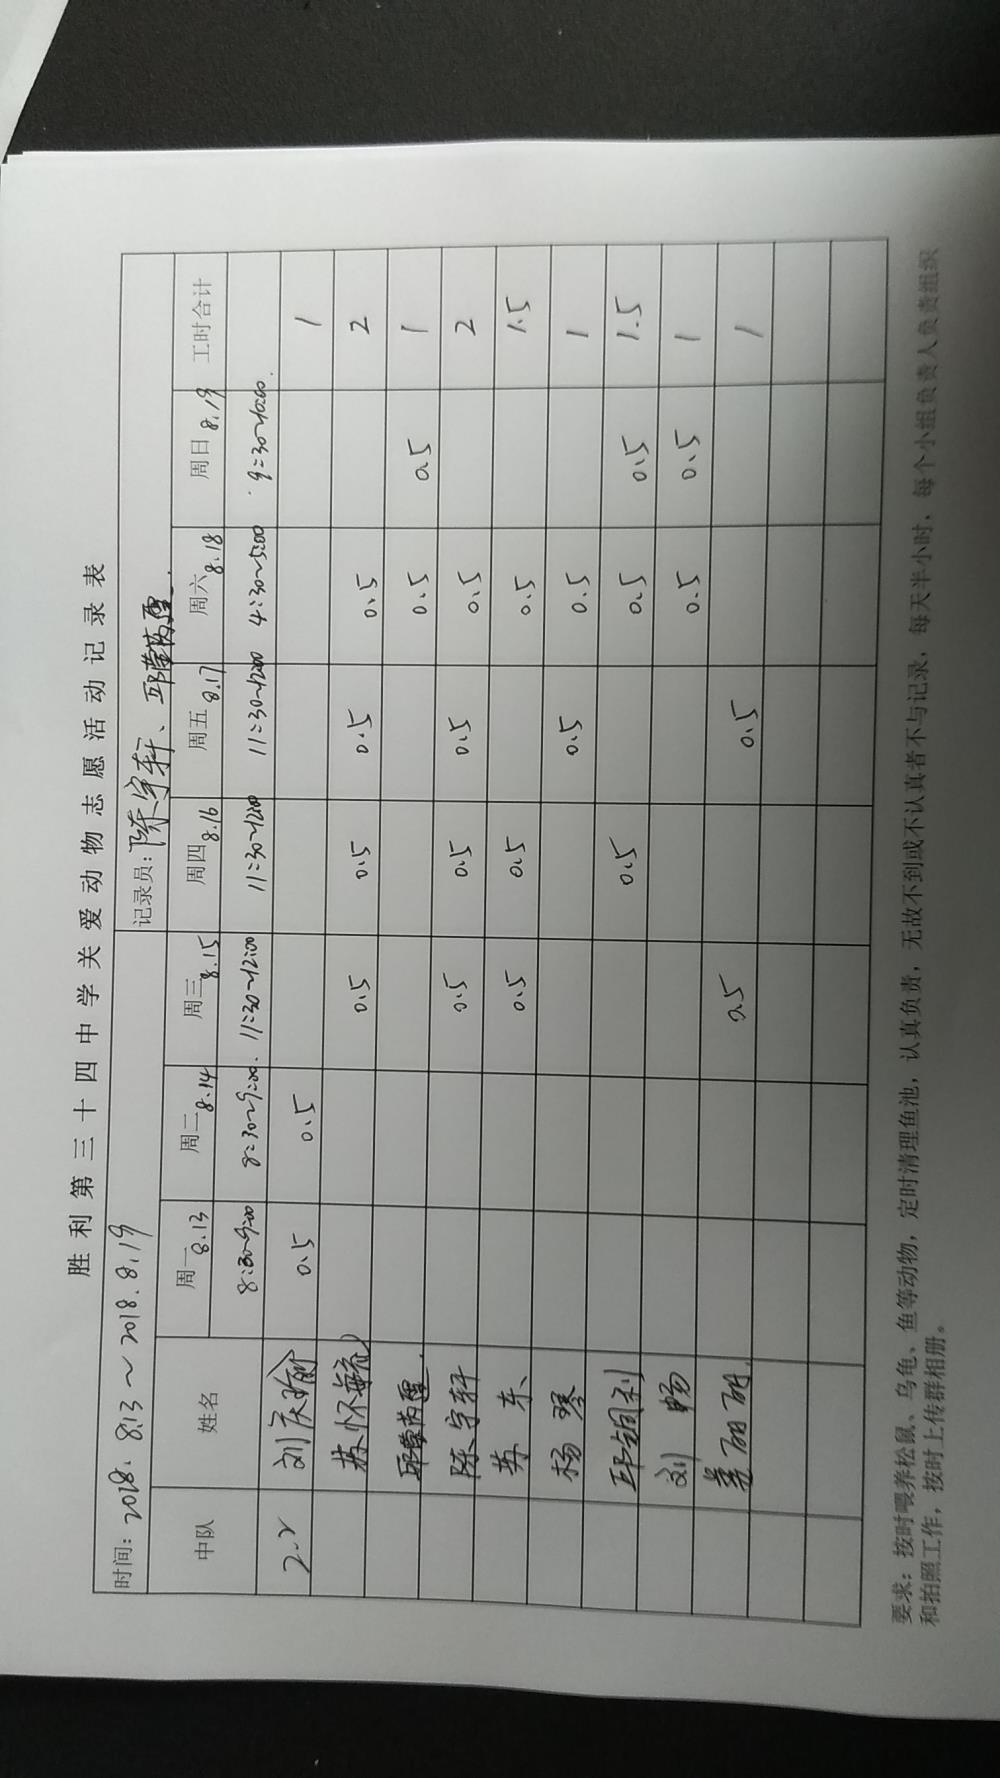 胜利第三十四中学关爱动物志愿活动记录表
时间：2018.8.13～2018.8.19 记录员：陈宇轩、邱蓥芮
中队 姓名 周一8.13 周二8.14 周三8.15 周四8.16 周五8.17 周六8.18 周日8.19 工时合计
8:30~9:00 8:30~9:00. 11:30~12:00 11:30~12:00 11:30~12:00 4:30~5:00 9:30~10:00.
2.2 刘庆瑜 0.5 0.5 1
苏怀毓 0.5 0.5 0.5 0.5 2
0.5 0.5 1
陈宇轩 0.5 0.5 0.5 0.5 2
苏东 0.5 0.5 0.5 1.5
杨琴 0.5 0.5 1
邱钶利 0.5 0.5 0.5 1.5
刘畅 0.5 0.5 1
姜丽丽 0.5 0.5 1
要求：按时喂养松鼠、乌龟、鱼等动物，定时清理鱼池，认真负责，无故不到或不认真者不与记录，每天半小时，每个小组负责人负责组织
和拍照工作，按时上传群相册。